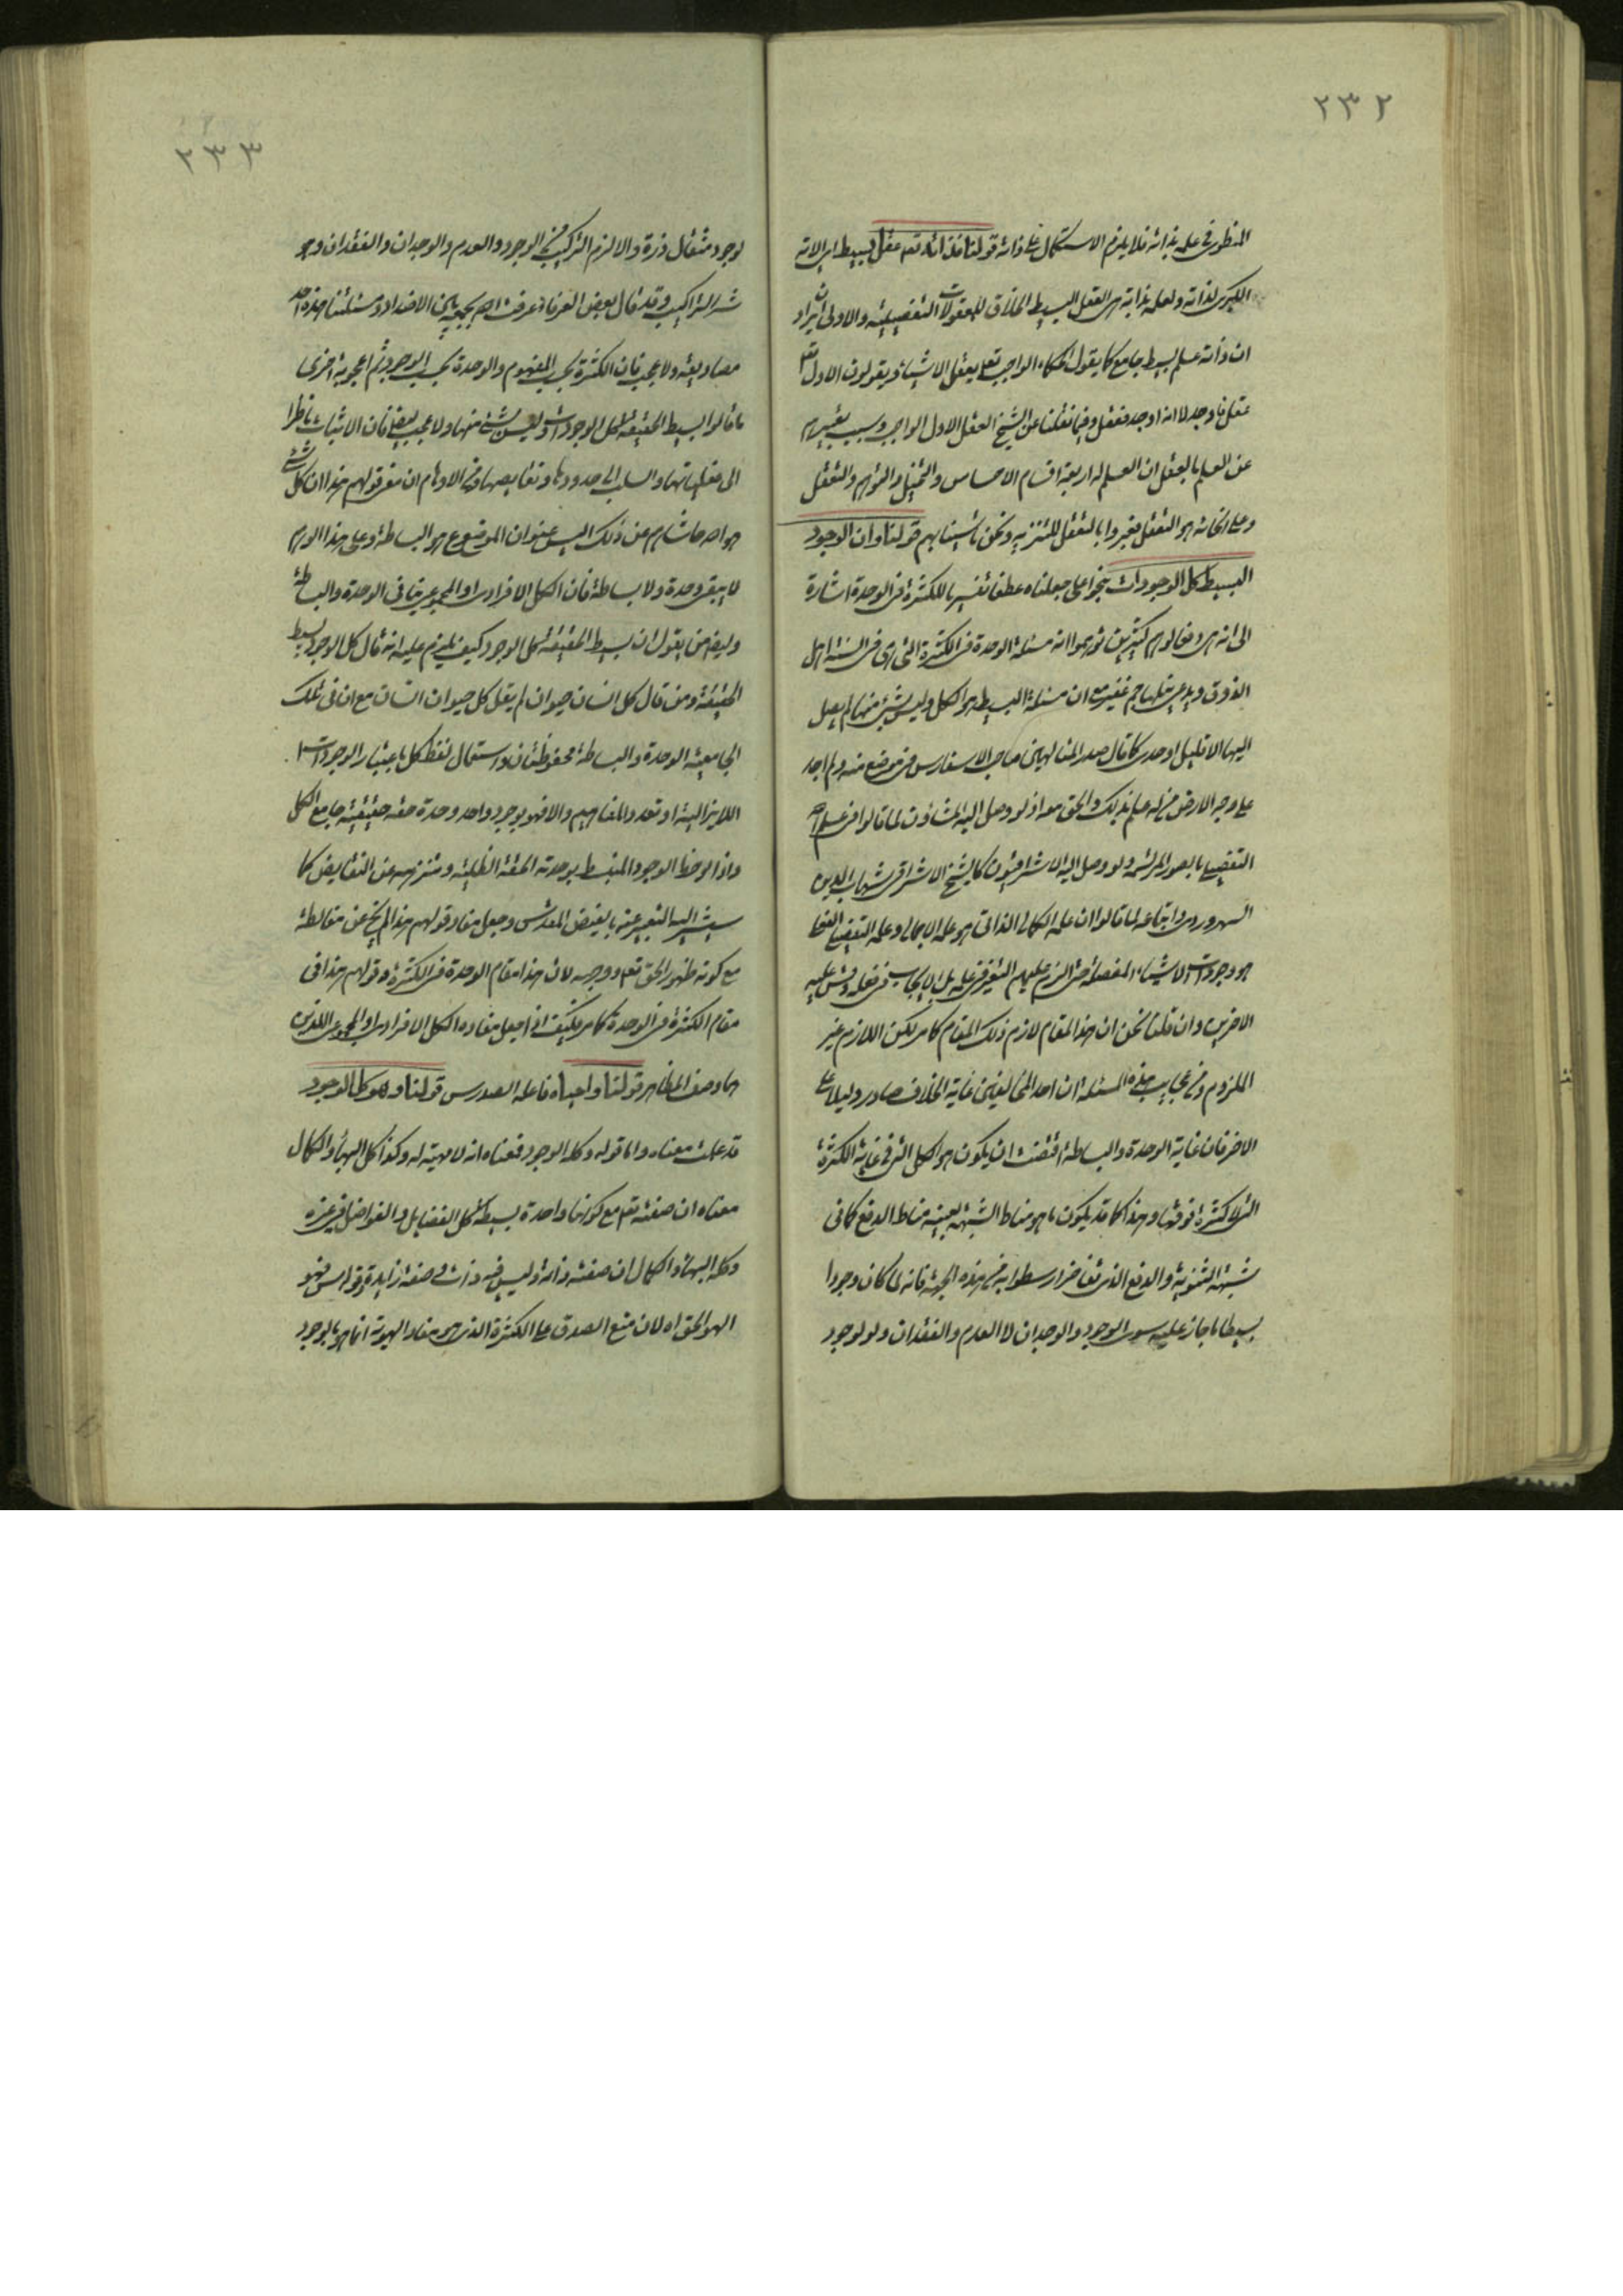 ٢٣٢
المنطوى فى علمه بذاته فلا يلزم الاستكمال على ذاته قولنا فذاته تعه عقل بسيط اى لاته
الكبرى لذاته ولعلمه بذاته هى العقل البسيط الخلاق للمعقولات التفصيلية والاولى ان يراد
ان ذاته علم بسيط جامع كما يقول الحكماء الواجب تعه يعقل الاشياء ويقولون الاول تعه
عقل فاوجد لا انه اوجد فعقل وفيما نقلنا عن الشيخ العقل الاول الواجب وسبب تعبيرهم
عن العلم بالعقل ان العلم له اربعة اقسام الاحساس والتخيل والتوهم والتعقل
وعلى انحائه هو التعقل فعبروا بالتعقل للتنزيه ونحن تاسينا بهم قولنا وان الوجود
البسيط كل الوجودات بنحو اعلى جعلناه عطفا تفسيريا للكثرة فى الوحدة اشارة
الى انه هى دفعا لوهم كثيرين توهموا انه مسئلة الوحدة فى الكثرة التى هى فى السنة اهل
الذوق ويدعى نيلها جم غفير مع ان مسئلة البسيط هو الكل وليس بشئ منها لم يصل
اليها الا قليل اوحدى كما قال صدر المتالهين صاحب الاسفار س فى موضع منه ولم اجد
على وجه الارض من له علم بذلك والحق معه اذ لو وصل اليه المشاؤن لما قالوا فى علمه
التفصيلى بالصور المرتسمة ولو وصل اليه الاشراقيون كالشيخ الاشراقى شهاب الدين
السهروردى واتباعه لما قالوا ان علمه الكمالى الذاتى هو علمه الاجمالى وعلمه التفصيلى الفعلى
هو وجودات الاشياء المفصلة حتى الزم عليهم التغير فى علمه بل الايجاب فى فعله وقس عليه
الاخرين وان قلنا نحن ان هذا المقام لازم ذلك المقام كما مر لكن اللازم غير
الملزوم ومن عجايب هذه المسئلة ان احد المخالفين غاية الخلاف صادر دليلا على
الاخر فان غاية الوحدة والبساطة اقتضت ان يكون هو الكل التى فى غاية الكثرة
التى لا كثرة فوقها وهذا كما قد يكون ما هو مناط الشبهة بعينه مناط الدفع كما فى
شبهة الثنوية والدفع الذى تفاخر ارسطو به من هذه الجهة فانه لما كان وجودا
بسيطا ما جاز عليه سوى الوجود والوجدان لا العدم والفقدان ولو لوجود
٢٣٣
لوجود مثقال ذرة والا لزم التركيب من الوجود والعدم والوجدان والفقدان وهو
شر التراكيب وقد قال بعض العرفاء عرفت الله بجمعه بين الاضداد ومسئلتنا هذه احد
مصاديقه ولا عجب فان الكثرة بحسب المفهوم والوحدة بحسب الوجود ثم اعجوبة اخرى
ما قالوا بسيط الحقيقة كل الوجودات وليس بشئ منها ولا عجب ايضا فان الاثبات ناظرا
الى فعلياتها والسلب الى حدودها ونقايصها ومن الاوهام ان مفر قولهم هذا ان كل شئ
هو الله حاشاهم عن ذلك اليس عنوان الموضوع هو البساطة وعلى هذا الوهم
لا يبقى وحدة ولا بساطة فان الكل الافرادى او المجموعى ينافى الوحدة والبساطة
وايضا من يقول ان بسيط الحقيقة كل الوجود كيف يلزم عليه انه قال كل الوجود بسيط
الحقيقة ومن قال كل انسان حيوان لم يقل كل حيوان انسان مع ان فى تلك
الجامعية الوحدة والبساطة محفوظتان واستعمال لفظ كل باعتبار الوجودات
اللايزالية او تعدد المفاهيم والا فهو بوجود واحد وحدة حقة حقيقية جامع الكل
واذا لوحظ الوجود المنبسط بوحدته الحقة الظلية وتنزهه عن النقايص كما
يشير اليه التعبير عنه بالفيض المقدس وجعل مفاد قولهم هذا لم يخل عن مغالطة
مع كونه ظهور الحق تعه ووجهه لان هذا مقام الوحدة فى الكثرة وقولهم هذا فى
مقام الكثرة فى الوحدة كما مر فكيف اذا جعل مفاده الكل الافرادى او المجموعى اللذين
هما وصف الماهيات قولنا واحياه فاعله الصدر س قولنا وهو كل الوجود
قد علمت معناه واما قوله وكله الوجود فمعناه انه لا مهية له وكذا كل البهاء والكمال
معناه ان صفته تعه مع كونها واحدة بسيطة كل الفضايل والفواضل فى غيره
وكله البهاء والكمال ان صفته ذاته وليس فيه ذات وصفة زايدة وقوله س فهو
الهو الحق اه لان منع الصدق على الكثرة الذى هو مفاد الهوية انما هو بالوجود